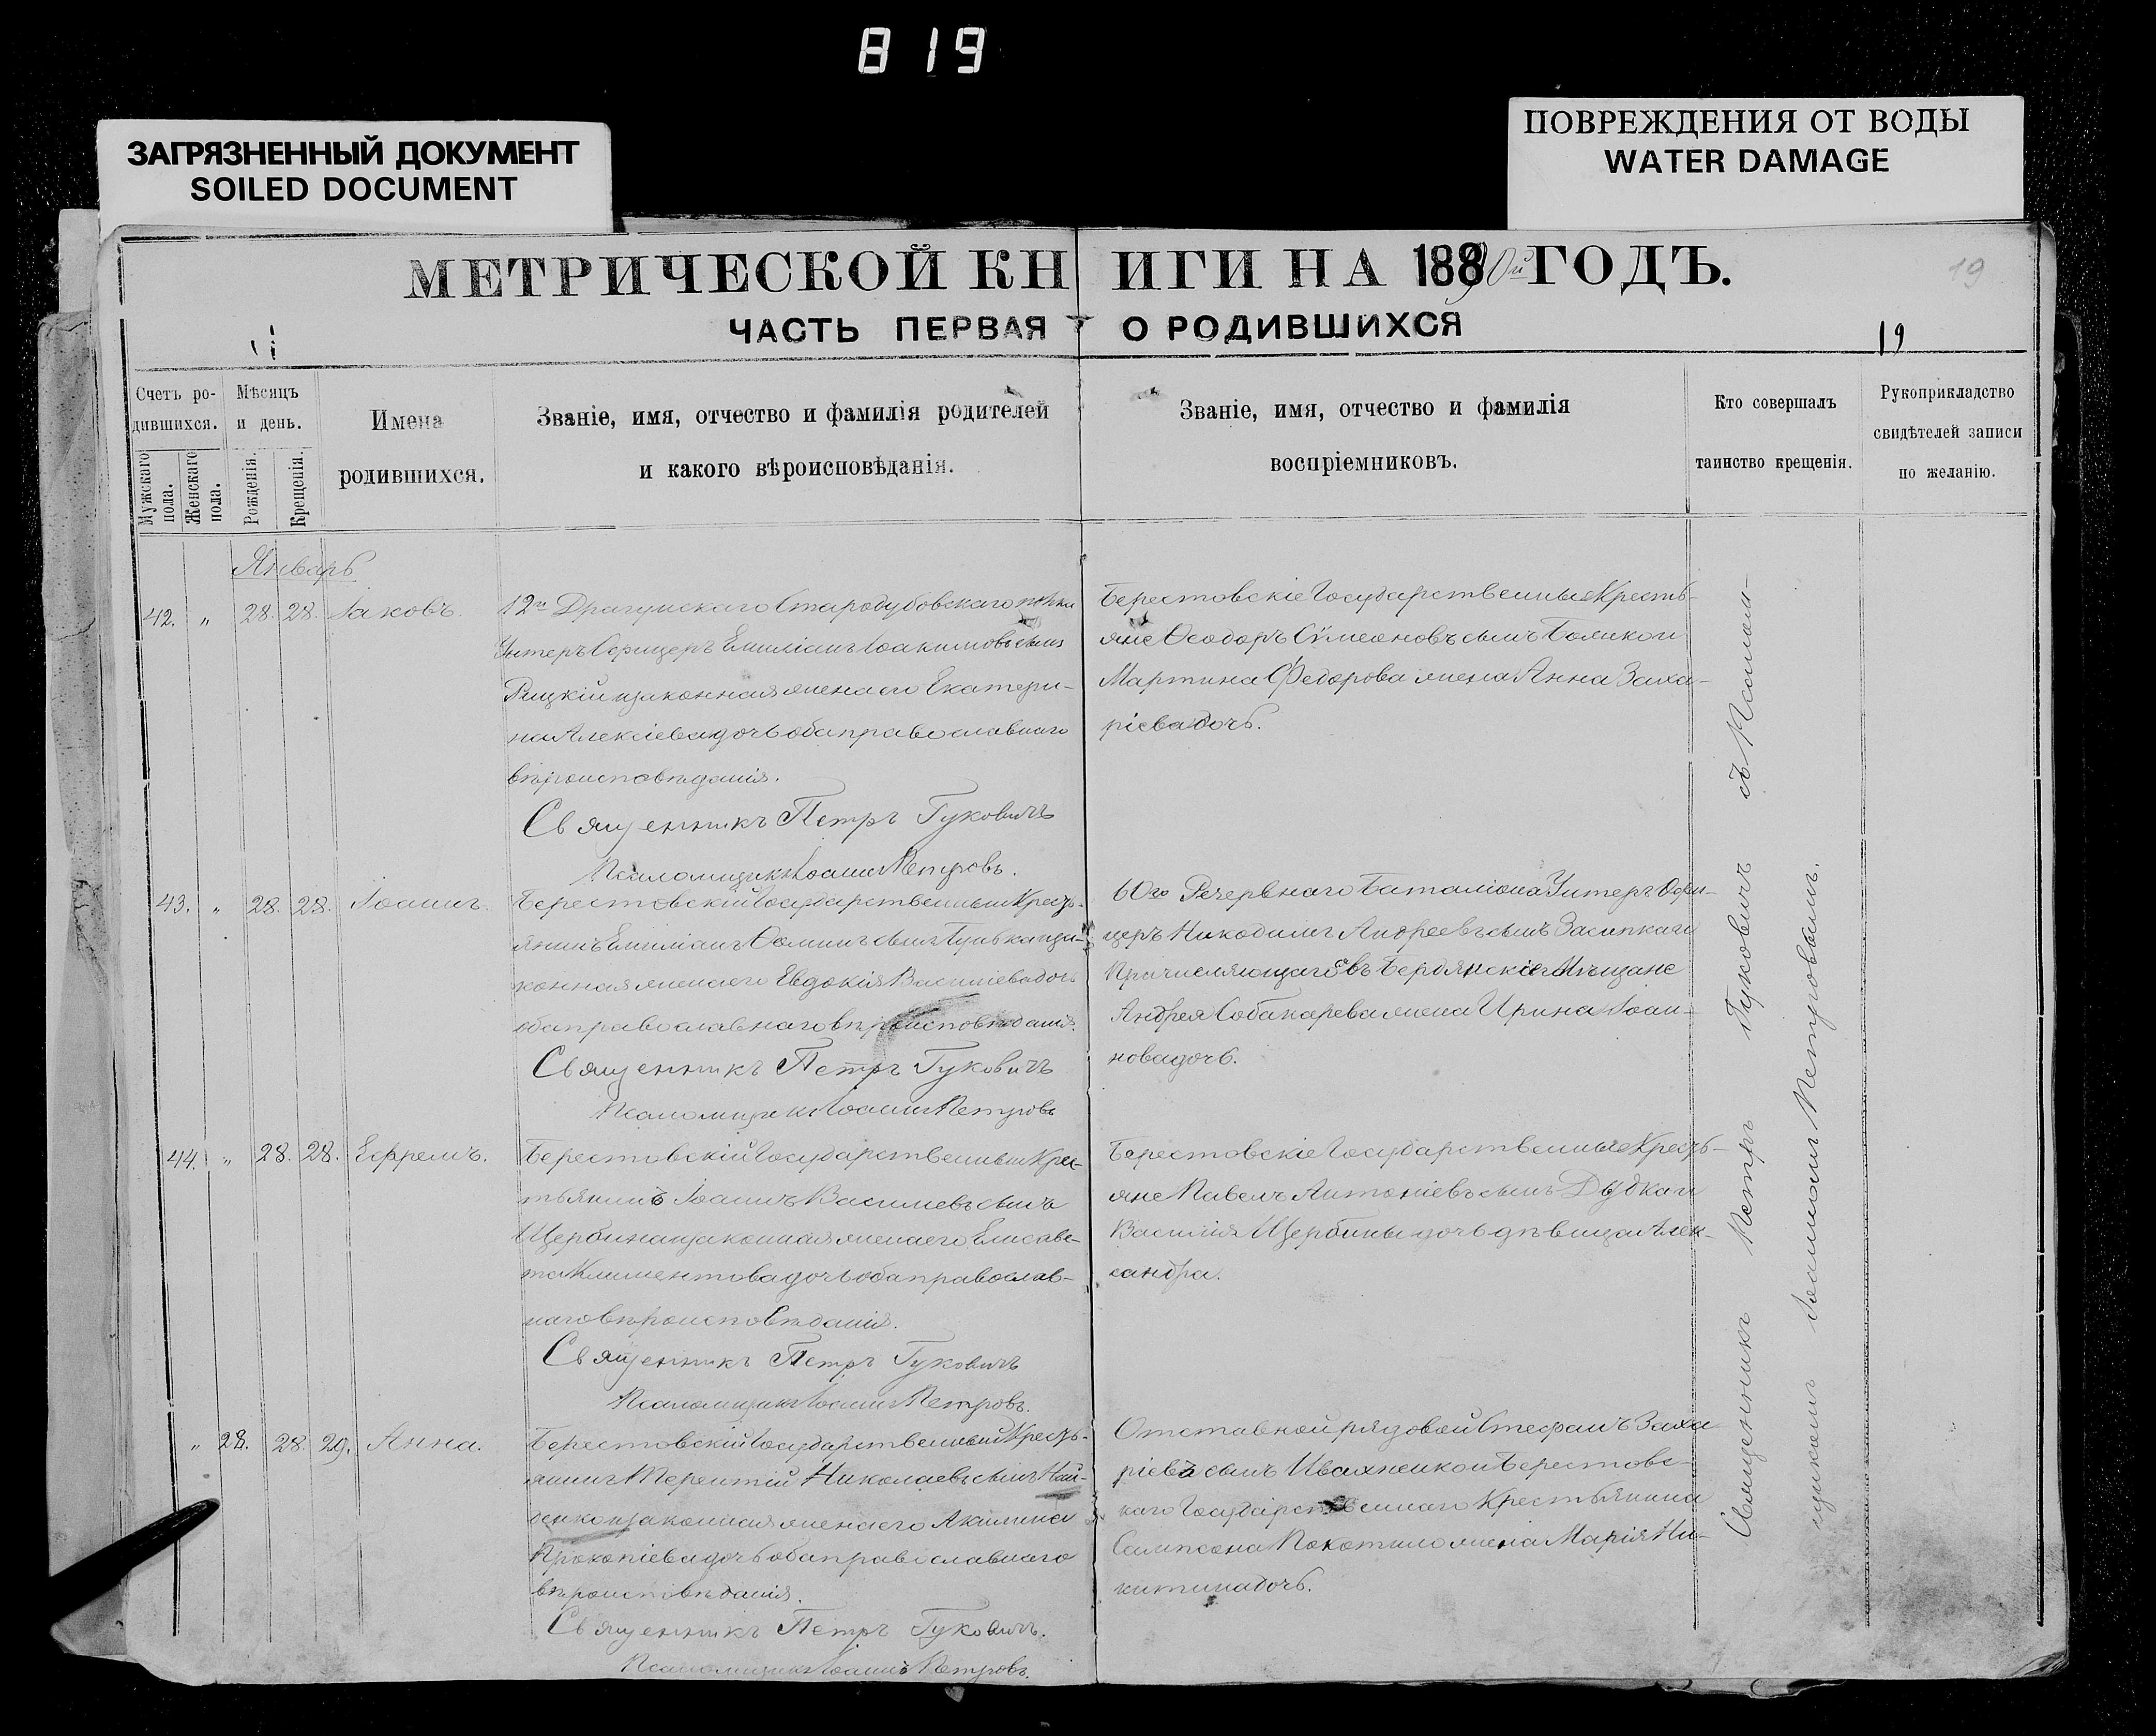 819
ЗАГРЯЗНЕННЫЙ ДОКУМЕНТ
SOILED DOCUMENT
ПОВРЕЖДЕНИЯ ОТ ВОДЫ
WATER DAMAGE
МЕТРИЧЕСКОЙ КНИГИ НА 1890й ГОДЪ.
19
ЧАСТЬ ПЕРВАЯ О РОДИВШИХСЯ
19
Счетъ родившихся.
Мужскаго пола.
Женскаго пола.
Мѣсяцъ и день.
Рожденія.
Крещенія.
Имена
родившихся.
Званіе, имя, отчество и фамилія родителей
и какого вѣроисповѣданія.
Званіе, имя, отчество и фамилія
воспріемниковъ.
Кто совершалъ
таинство крещенія.
Рукоприкладство
свидѣтелей записи
по желанію.
Январь
42. " 28. 28. Іаковъ.
12го Драгунскаго Стародубовскаго полка
Унтеръ Офицеръ Емиліанъ Іоакимовъ сынъ
и законная жена его Екатери-
на Алексіева дочь оба православнаго
вѣроисповѣданія.
Священникъ Петръ Гуковичъ
Псаломщикъ Іоаннъ Петровъ.
Берестовскіе Государственные Кресть-
яне Ѳеодоръ Сѵмеоновъ сынъ и
Мартина Федорова жена Анна Заха-
ріева дочь.
43. " 28. 28. Іоаннъ.
Берестовскій Государственный Кресть-
янинъ Емиліанъ Ѳоминъ сынъ и за-
конная жена его Евдокія Василіева дочь
оба православнаго вѣроисповѣданія.
Священникъ Петръ Гуковичъ
Псаломщикъ Іоаннъ Петровъ
60го Резервнаго Баталіона Унтеръ Офи-
церъ Никодимъ Андреевъ сынъ Засипка и
Причисляющагося въ Бердянскіе Мѣщане
Андрея Собакарева жена Ирина Іоан-
нова дочь.
44. " 28. 28. Ефремъ.
Берестовскій Государственный Крес-
тьянинъ Іоаннъ Василіевъ сынъ
Щербина и законная жена его Елисаве-
та Климентова дочь оба православ-
наго вѣроисповѣданія.
Священникъ Петръ Гуковичъ
Псаломщикъ Іоаннъ Петровъ.
Берестовскіе Государственные Кресть-
яне Павелъ Антоніевъ сынъ Дудка и
Василія Щербины дочь дѣвица Алек-
сандра.
" 28. 28. 29. Анна.
Берестовскій Государственный Кресть-
янинъ Терентій Николаевъ сынъ Най-
денко и законная жена его Акилина
Прокопіева дочь оба православнаго
вѣроисповѣданія.
Священникъ Петръ Гуковичъ.
Псаломщикъ Іоаннъ Петровъ.
Отставной рядовой Стефанъ Заха
ріевъ сынъ Ивахненко и Берестовс-
каго Государственнаго Крестьянина
Сампсона Покотило жена Марія Ни-
китина дочь.
Священникъ Петръ Гуковичъ съ Псалом-
щикомъ Іоанномъ Петровымъ.